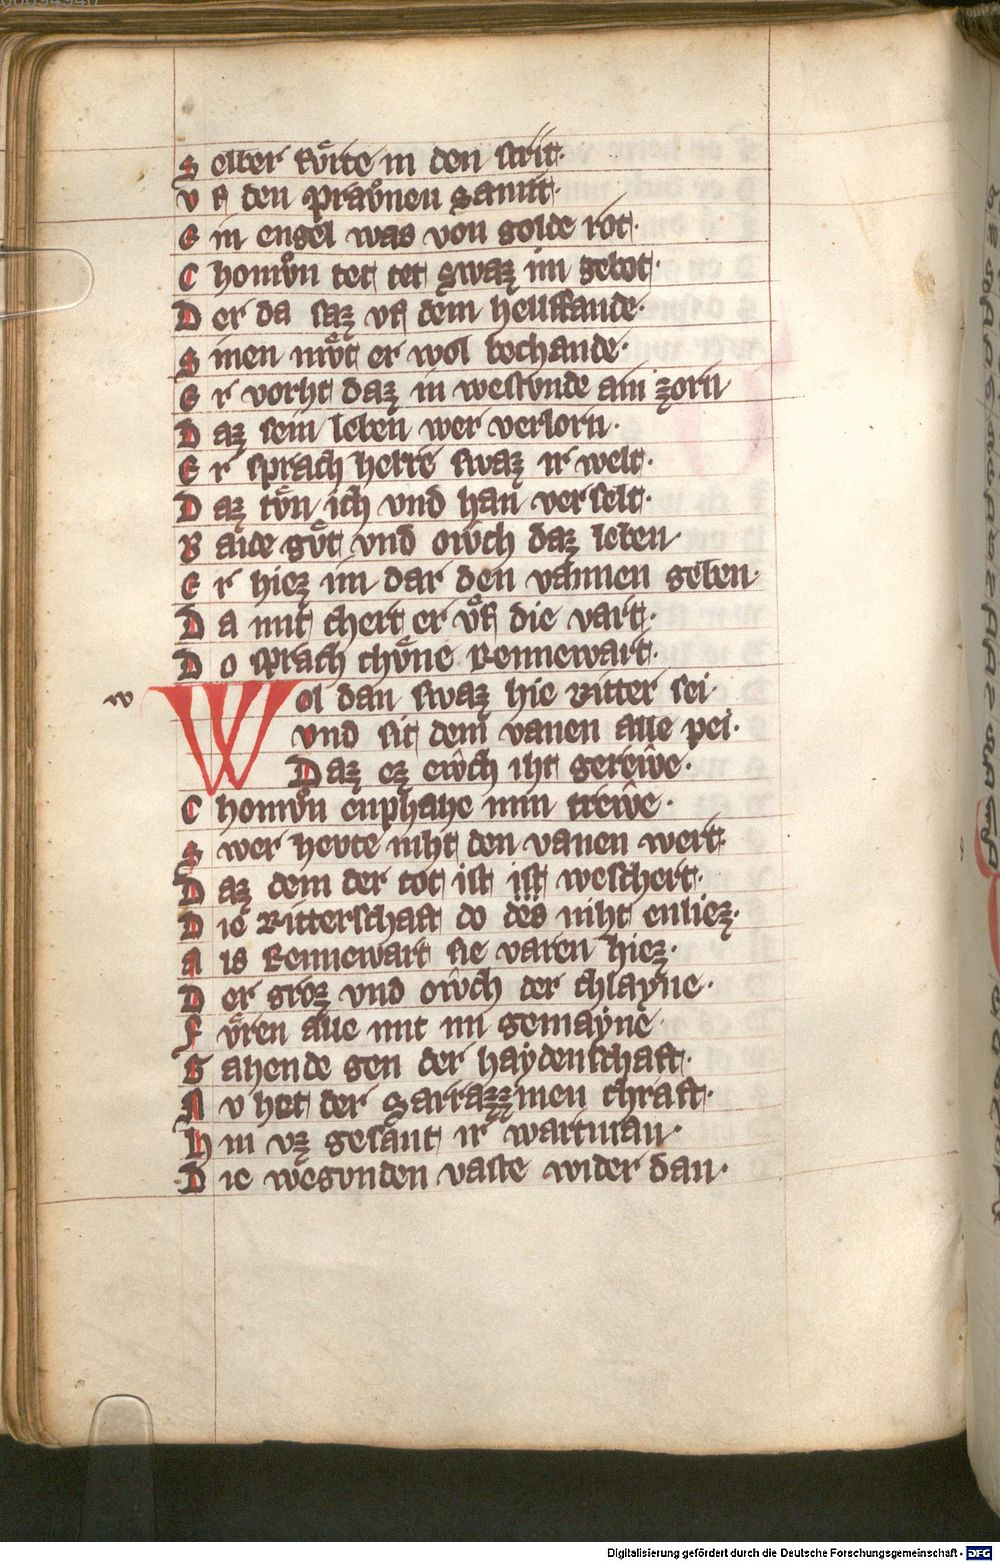 S elber fuͦrte in den strit·
v f den pravͦnen Samit·
E in engel was von golde rot·
C homvͦn tet tet swaz im gebot·
D er da saz vf dem hellffande·
S inen mvͦt er wol bechande·
E r vorht daz in westvnde ain zorn
D az sein leben wer verlorn·
E r sprach herre swaz ir welt·
D az tvͦn ich vnd han verselt·
B aide gvͦt vnd owch daz leben·
E r hiez im dar den vannen geben·
D a mit chert er vͦf die vart·
D o sprach chvͤne Rennewart·
w
W ol dan swaz hie Ritter sei·
vnd sit dem vanen alle pei·
Daz ez ewch iht gerewe·
C homvͦn enphahe min trewe·
S wer hevte niht den vanen wert·
D az dem der tot ist ist weschert·
D ie Ritterschaft do des niht enliez·
A ls Rennewart sie varen hiez·
D er groz vnd owch der chlayne·
F vͦren alle mit im gemayne
G ahende gen der haydenschaft·
N v het der Sarrazzinen chraft·
H in vz gesant ir wartman·
D ie wegvnden vaste wider dan·
Digitalisierung gefördert durch die Deutsche Forschungsgemeinschaft - DFG